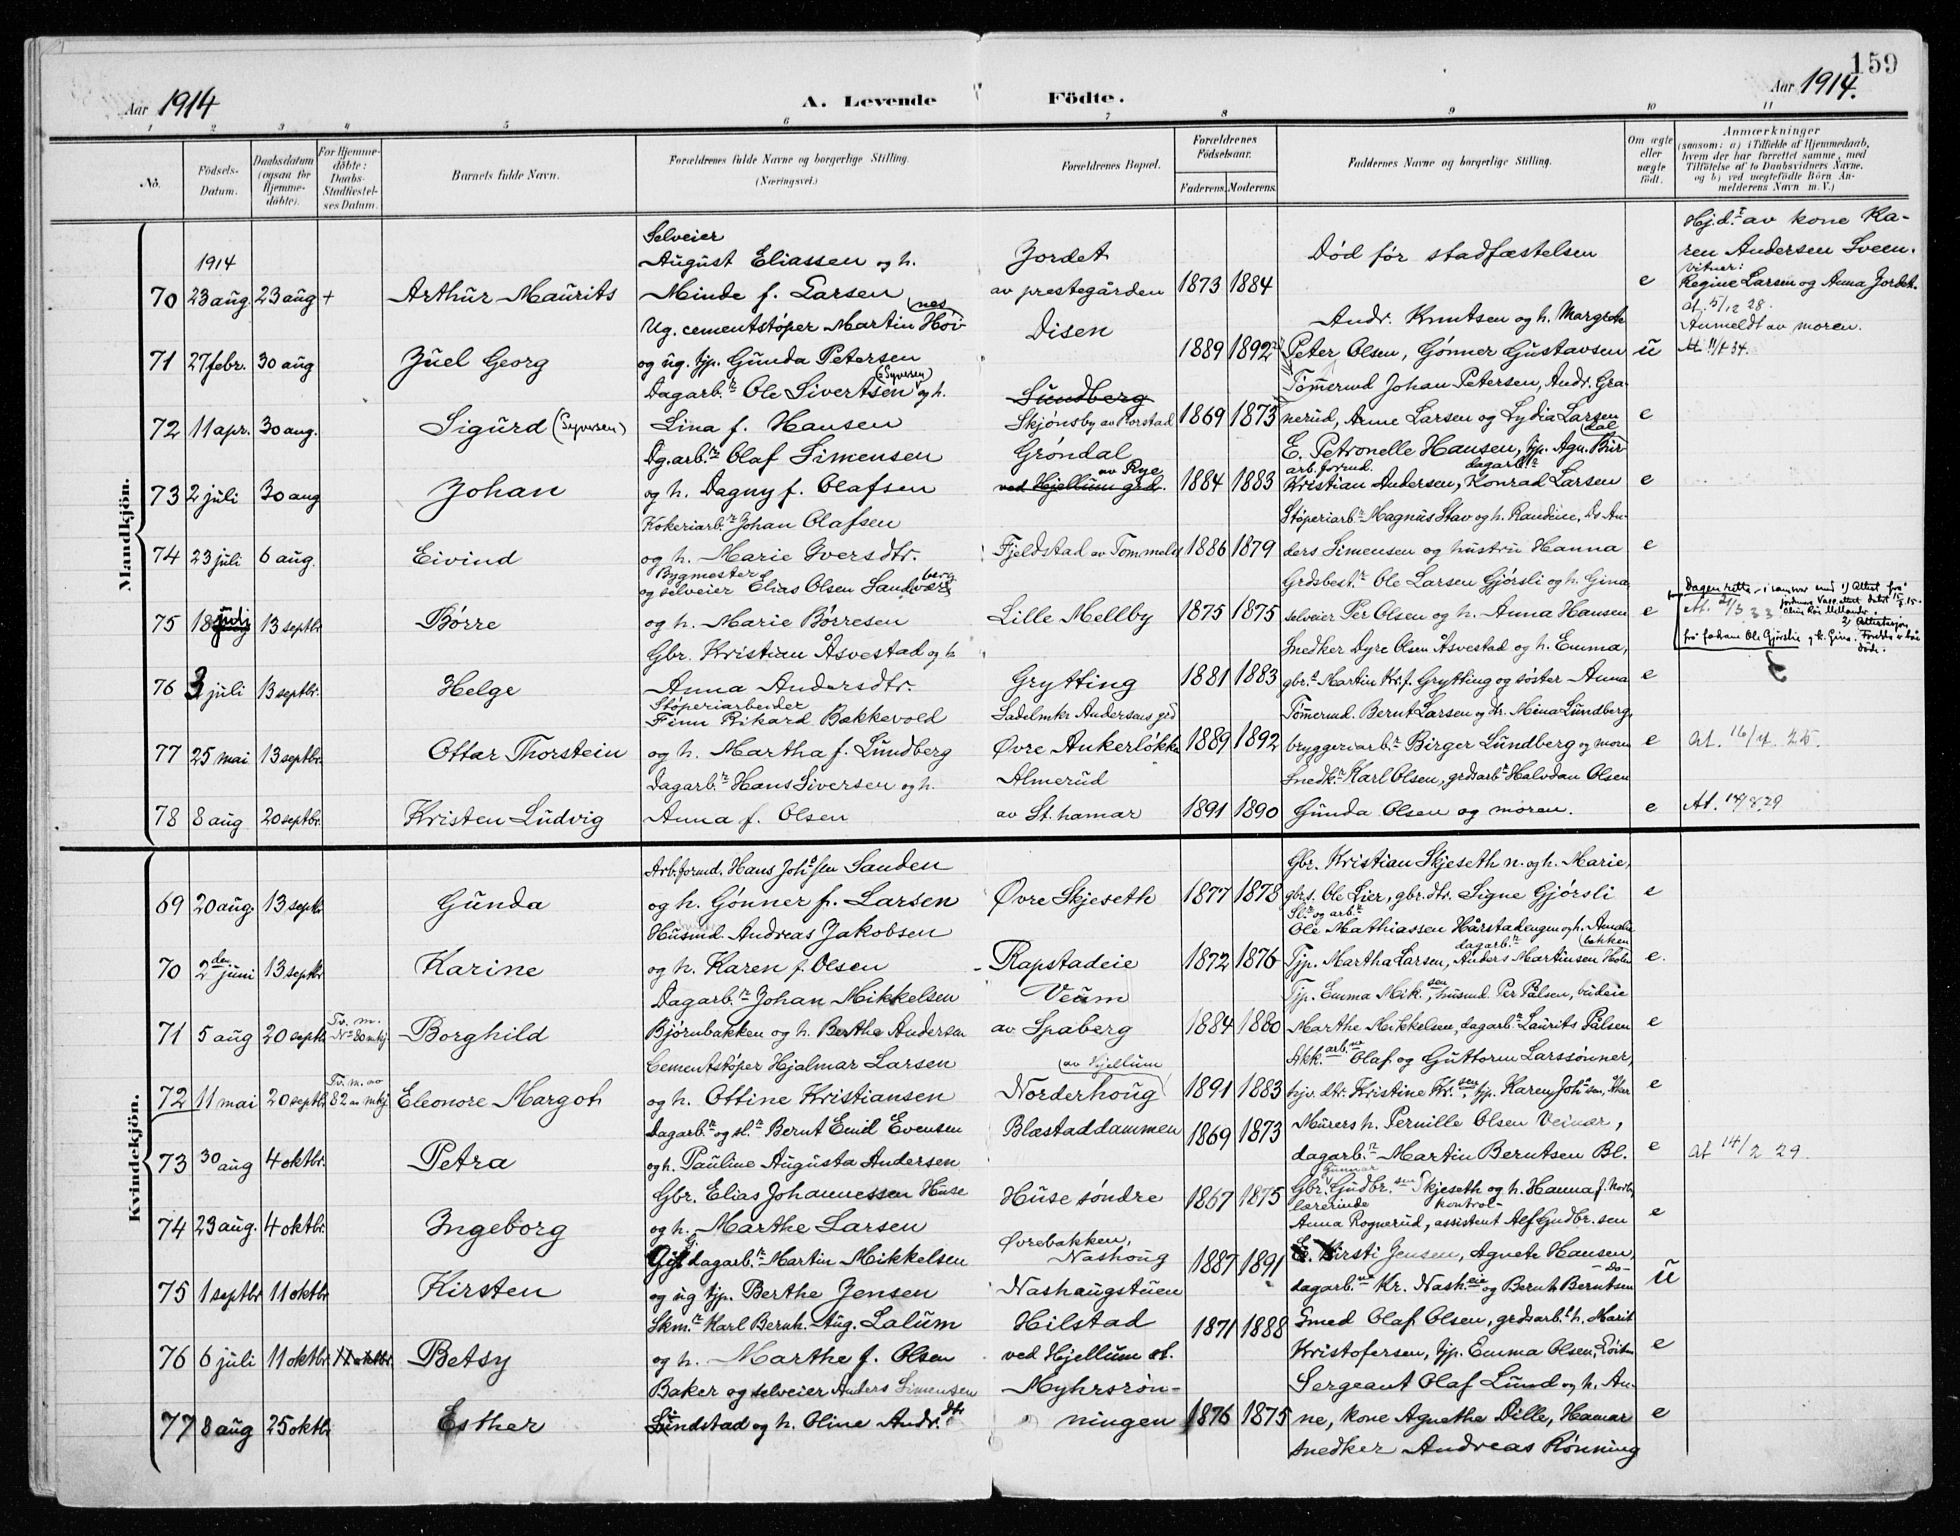 159
Aar 1914 A. Levende Födte. Aar 1914.
1 2 3 4 5 6 7 8 9 10 11
No.
Födsels-Datum.
Daabsdatum (ogsaa for Hjemme-döbte).
For Hjemme-döbte: Daabs-Stadfæstelses Datum.
Barnets fulde Navn.
Forældrenes fulde Navne og borgerlige Stilling. (Næringsvei.)
Forældrenes Bopæl.
Forældrenes Födselsaar.
Faderens. Moderens.
Faddernes Navne og borgerlige Stilling.
Om ægte eller uægte födt.
Anmærkninger (saasom: a) i Tilfælde af Hjemmedaab, hvem der har forrettet samme, med Tilföielse af to Daabsvidners Navne, og b) ved uegtefödte Börn Anmelderens Navn m. V.)
Mandkjön.
1914
70 23 aug. 23 aug + Arthur Maurits
Selveier
August Eliassen og h.
Minde f. Larsen
Jordet
av prestegården
1873 1884
Død før stadfæstelsen
e
Hjd. av kone Ka-
ren Andersen Sveen.
vitner:
Regine Larsen og Anna Jordet.
at. 5/12 28.
71 27 febr. 30 aug Juel Georg
Ug. cementstøper Martin Høv-
nes
og ug. tjp. Gunda Petersen
Disen
1889 1892
Andr. Knutsen og h. Margrethe
Peter Olsen, Gønner Gustavsen
u
Anmeldt av moren.
72 11 apr. 30 aug. Sigurd (Syversen)
Dagarb. Ole Sivertsen og h.
(Syversen)
Lina f. Hansen
Sundberg
Skjønsby av Porstad
1869 1873
Tømmermd Johan Petersen, Andr. Gra-
nerud, Anne Larsen og Lydia Larsen
e
73 2 juli 30 aug Johan
Dg.arb. Olaf Simensen
og h. Dagny f. Olafsen
Grøndal
av Rye
ved Hjellum grd.
1884 1883
E. Petronelle Hansen, tjp. Agn. Bür-
dal
arb. formd. dagarb.
Kristian Andersen, Konrad Larsen
e
74 23 juli 6 aug. Eivind
Kokeriarb. Johan Olafsen
og h. Marie Iversdtr.
Fjeldstad av Tommelst
1886 1879
Støperiarb. Magnus Stav og h. Randine, Do An-
ders Simensen og hustru Hanna
e
75 18 juli 13 septbr. Børre
Bygmester
og selveier Elias Olsen Sandvær
berg
og h. Marie Børresen
Lille Mellby
1875 1875
Grdbest. Ole Larsen Gjørsli og h. Gina,
selveier Per Olsen og h. Anna Hansen
e
At. 21/3 33
76 3 juli 13 septbr. Helge
Gbr. Kristian Åsvestad og h
Anna Andersdtr.
Grytting
1881 1883
Snedker Dyre Olsen Åsvestad og h. Emma,
gbr. Martin Kr.f. Grytting og søster Anna
e
77 25 mai 13 septbr. Ottar Thorstein
Støperiarbeider
Finn Rikard Bakkevold
og h. Martha f. Lundberg
Sadelmkr Andersens grd
Øvre Ankerløkke
1889 1892
Tømmermd. Bernt Larsen og Fr. Mina Lundberg,
bryggeriarb. Birger Lundberg og moren
e
at. 16/4. 25.
78 8 aug 20 septbr. Kristen Ludvig
Dagarb. Hans Siversen og h.
Anna f. Olsen
Almerud
av St. hamar
1891 1890
Snedk. Karl Olsen, grdsarb. Halvdan Olsen
Gunda Olsen og moren.
e
At. 14/8 29
Kvindekjön.
69 20 aug. 13 septr. Gunda
Arb.formd. Hans Johs.sen Sanden
og h. Gønner f. Larsen
Øvre Skjeseth
1877 1878
Gbr. Kristian Skjeseth n. og h. Marie,
gbrs. Ole Lier, gbr.dtr. Signe Gjørsli
e
70 2den juni 13 septbr. Karine
Husmd. Andreas Jakobsen
og h. Karen f. Olsen
Rapstadeie
1872 1876
Sl. og arb.
Ole Mathiassen Hårstadengen og h. Amalie
dagarb. bakken
Tjp. Martha Larsen, Anders Martinsen Holm
e.
71 5 aug 20 septb. Tv. m. No 80 mkj. Borghild
Dagarb. Johan Mikkelsen
Bjørnbakken og h. Berthe Andersen
Veum
av Spaberg
1884 1880
Tjp. Emma Mik.sen, husmd. Per Pålsen, budeie
Marthe Mikkelsen, dagarb. Laurits Pålsen
e
72 11 mai 20 septbr. Tv. m. 82 av mkj. Eleonore Margot
Cementstøper Hjalmar Larsen
og h. Ottine Kristiansen
av Hjellum
Norderhoug
1891 1883
Akk. arb. Olaf og Guttorm Larssønner,
hjv. dtr. Kristine Kr.sen, tjp. Karen Johs.sen,
e
73 30 aug 4 oktbr. Petra
Dagarb. og sl. Bernt Emil Evensen
og h. Pauline Augusta Andersen
Blæstaddammen
1869 1873
Murers h. Pernille Olsen Veinar,
dagarb. Martin Berntsen Bl.
e
at 14/2 29.
74 23 aug. 4 oktbr. Ingeborg
Gbr. Elias Johannessen Huse
og h. Marthe Larsen
Huse søndre
1867 1875
Gunnar
Gbr. Gudbr.sen Skjeseth og h. Hanna f. Norb.
lærerinde kontrol-
Anna Rognerud, assistent Alf Gudbr.sen
e
75 1 septbr 11 oktbr. Kirsten
Gift dagarb. Martin Mikkelsen
og ug tjp. Berthe Jensen
Øvrebakken,
Nashoug
Nashaugstuen
1887 1891
E. Kirsti Jensen, Agnete Hansen,
-Do-
dagarb. Kr. Nash.eie og Bernh. Berntsen
u
76 6 juli 11 oktbr. 11 oktbr. Betsy
Skm. Karl Bernh. Aug. Lalum
og h. Marthe f. Olsen
Hilstad
ved Hjellum st.
1871 1888
Smed Olaf Olsen, grdsarb. h. Marit
Kristofersen, tjp. Emma Olsen,
e
77 8 aug 25 oktbr Esther
Baker og selveier Anders Simensen
Sundstad og h. Oline Andr.dtr
Myhrsrøn-
ningen
1876 1875
Sergeant Olaf Lund og h. An-
ne, kone Agnethe Dille, Hamar
snedker Andreas Rønning
e